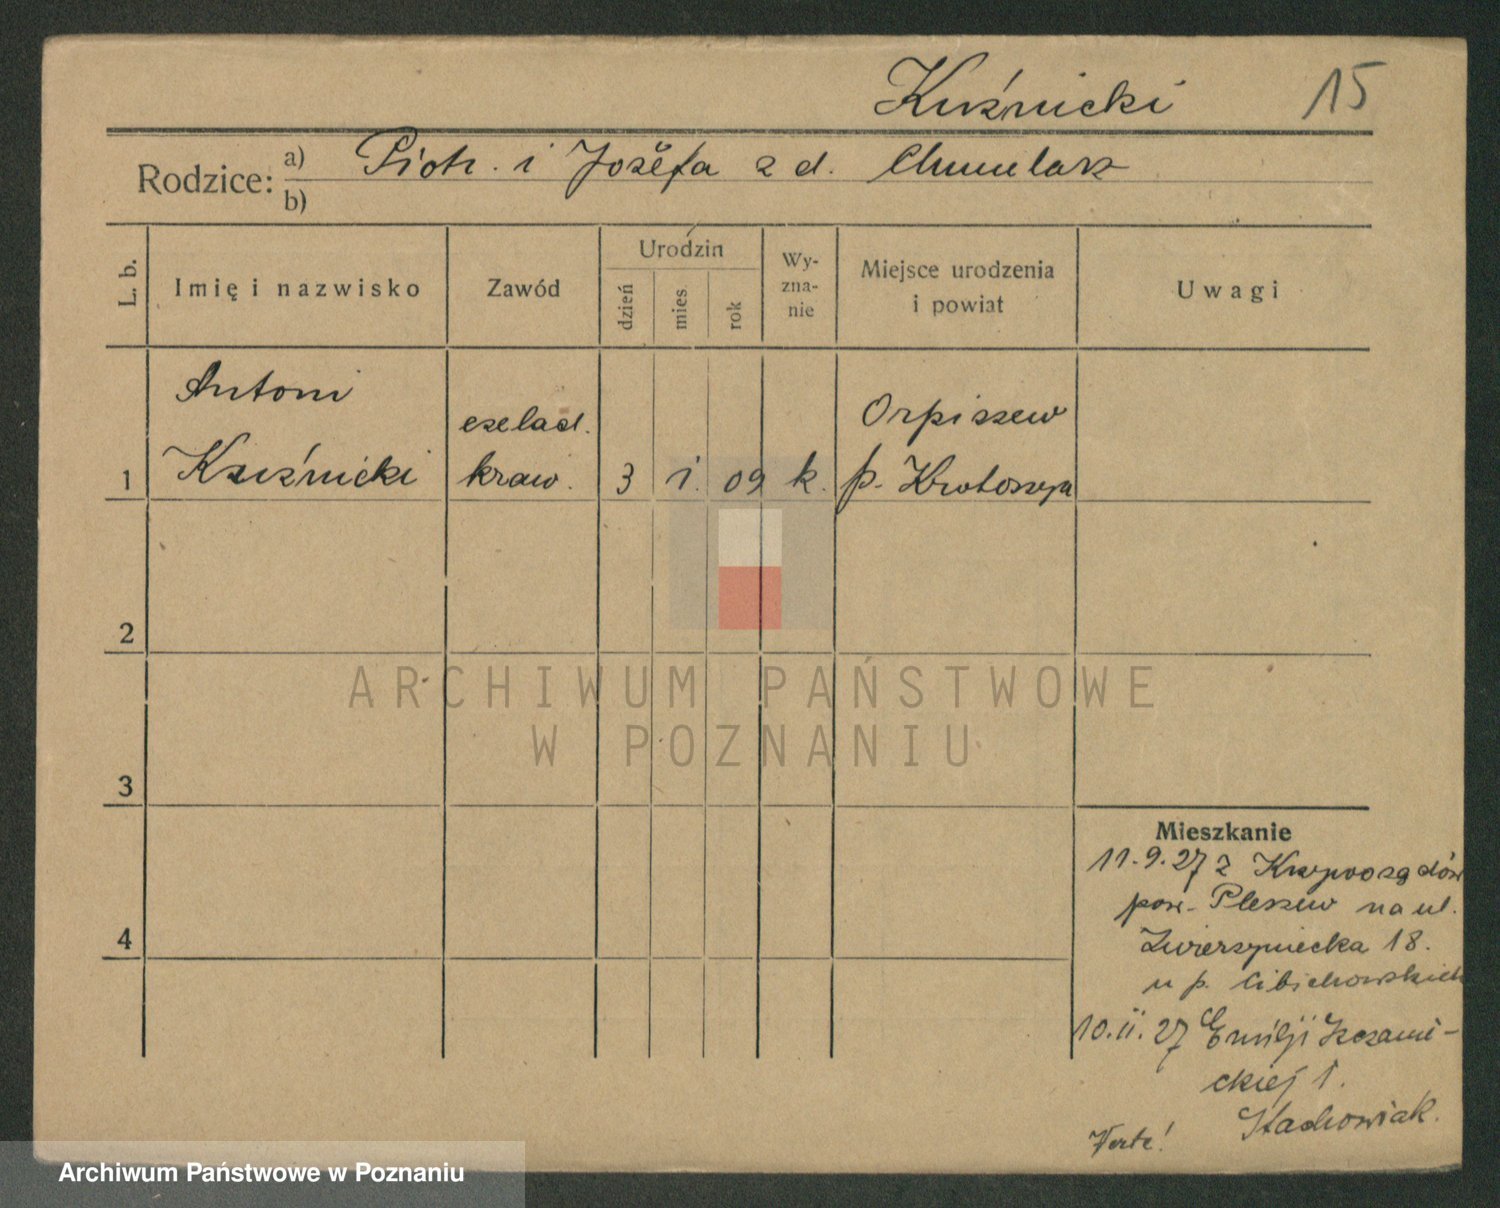 Kuźnicki 15
Rodzice: a) Piotr. i Józefa z d. Chmielarz
b)
L. b. Imię i nazwisko Zawód Urodzin dzień mies rok Wy-zna-nie Miejsce urodzenia i powiat Uwagi
Antoni
czelad. Orpiszew
1 Kuźnicki kraw. 3 i. 09 k. p. Krotoszyn
2
ARCHIWUM PAŃSTWOWE
W POZNANIU
3
Mieszkanie
11.9.27 z Krzywosądów
pow. Pleszew na ul.
4
Zwierzyniecka 18.
u p. Cibichowskich
10.ii.27 Emilji Sczanie-
ckiej 1.
Stachowiak.
Verte!
Archiwum Państwowe w Poznaniu